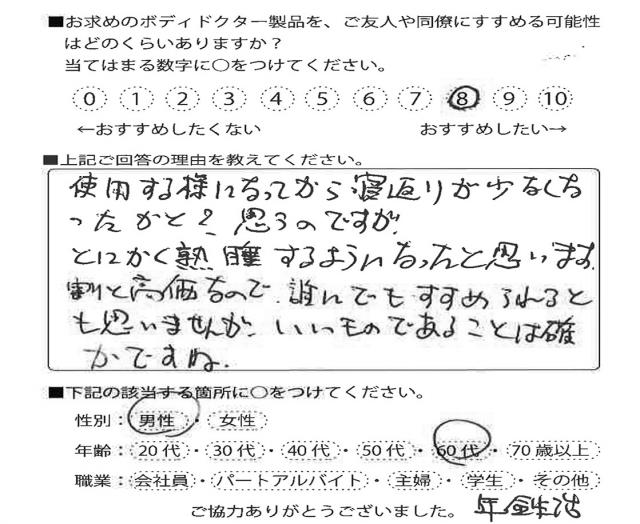 ■お求めのボディドクター製品を、ご友人や同僚にすすめる可能性
はどのくらいありますか？
当てはまる数字に○をつけてください。
0 1 2 3 4 5 6 7 8 9 10
←おすすめしたくない おすすめしたい→
■上記ご回答の理由を教えてください。
使用する様になってから寝返りが少なくな
ったかと？思うのですが、
とにかく熟睡するようになったと思います。
割と高価なので、誰にでもすすめられると
も思いませんが、いいものであることは確
かですね。
■下記の該当する箇所に○をつけてください。
性別：男性・女性
年齢：20代・30代・40代・50代・60代・70歳以上
職業：会社員・パートアルバイト・主婦・学生・その他
ご協力ありがとうございました。 年金生活